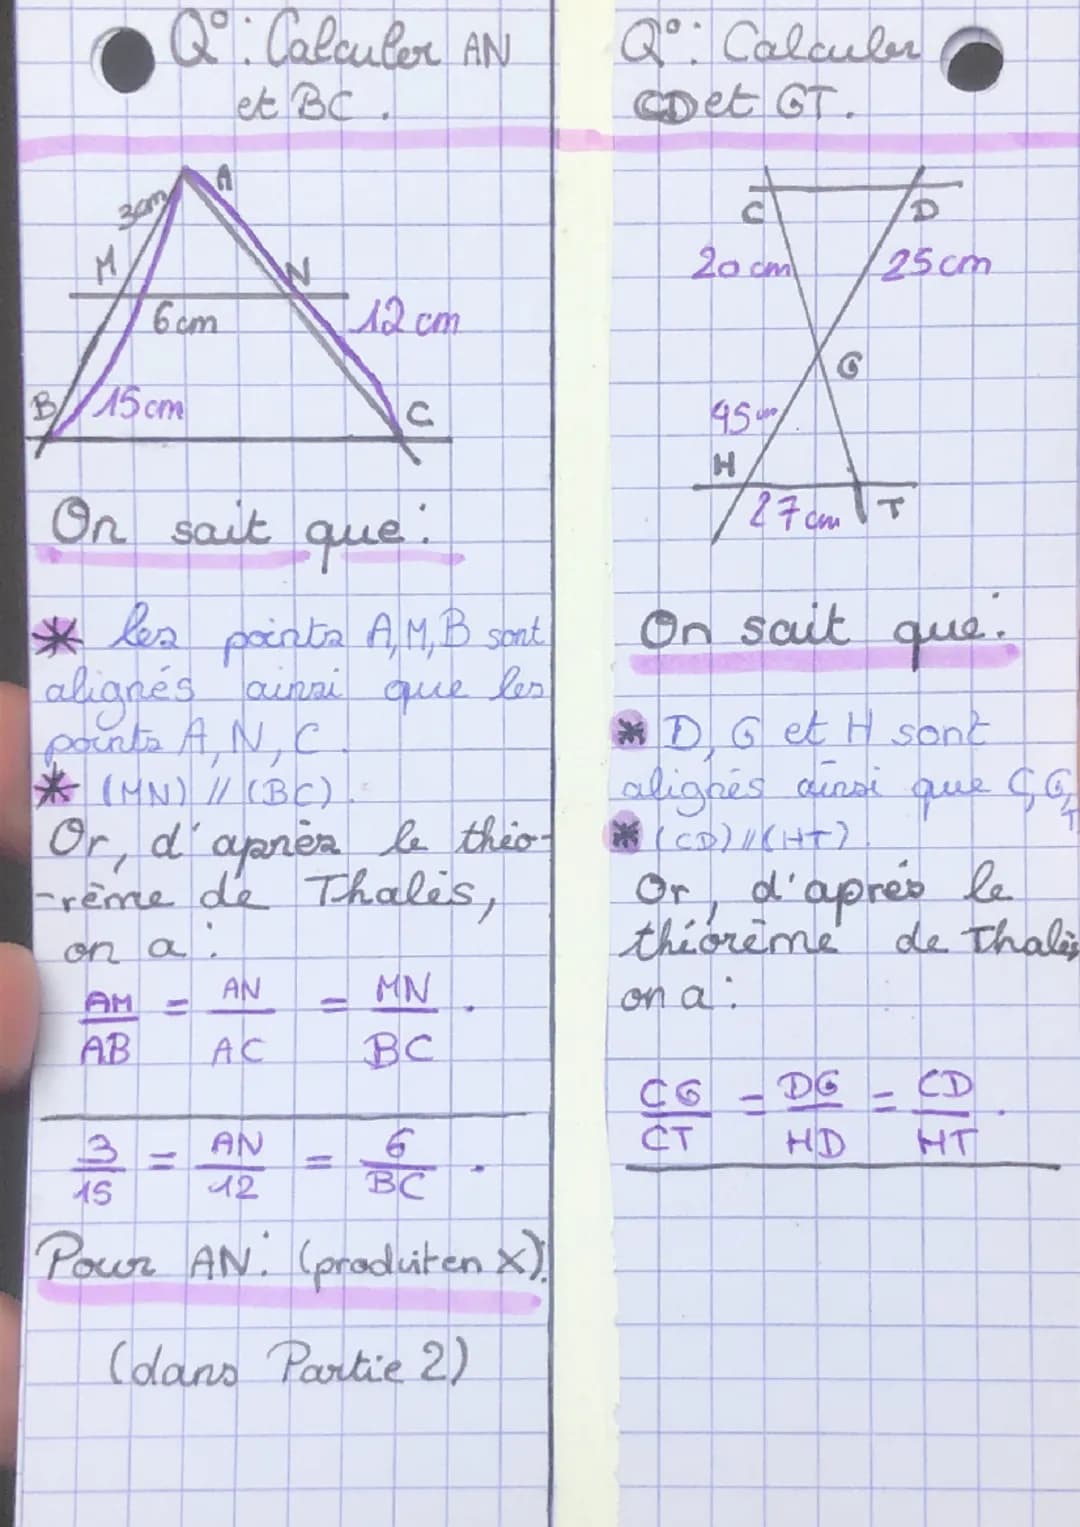 Q° : Calculer AN
et BC.
A
3cm
M
N
6 cm
12 cm
B
15cm
C
On sait que :
* les points A, M, B sont
alignés ainsi que les
points A, N, C.
* (MN) // (BC).
Or, d'après le théo-
-rème de Thalès,
on a :
AM/AB = AN/AC = MN/BC.
3/15 = AN/12 = 6/BC.
Pour AN : (produit en X).
(dans Partie 2)
Q° : Calculer
CD et GT.
C
D
20 cm
25cm
G
45 cm
H
27 cm
T
On sait que :
* D, G et H sont
alignés ainsi que C, G,
T
* (CD) // (HT).
Or, d'après le
théorème de Thalès
on a :
CG/CT = DG/HD = CD/HT.